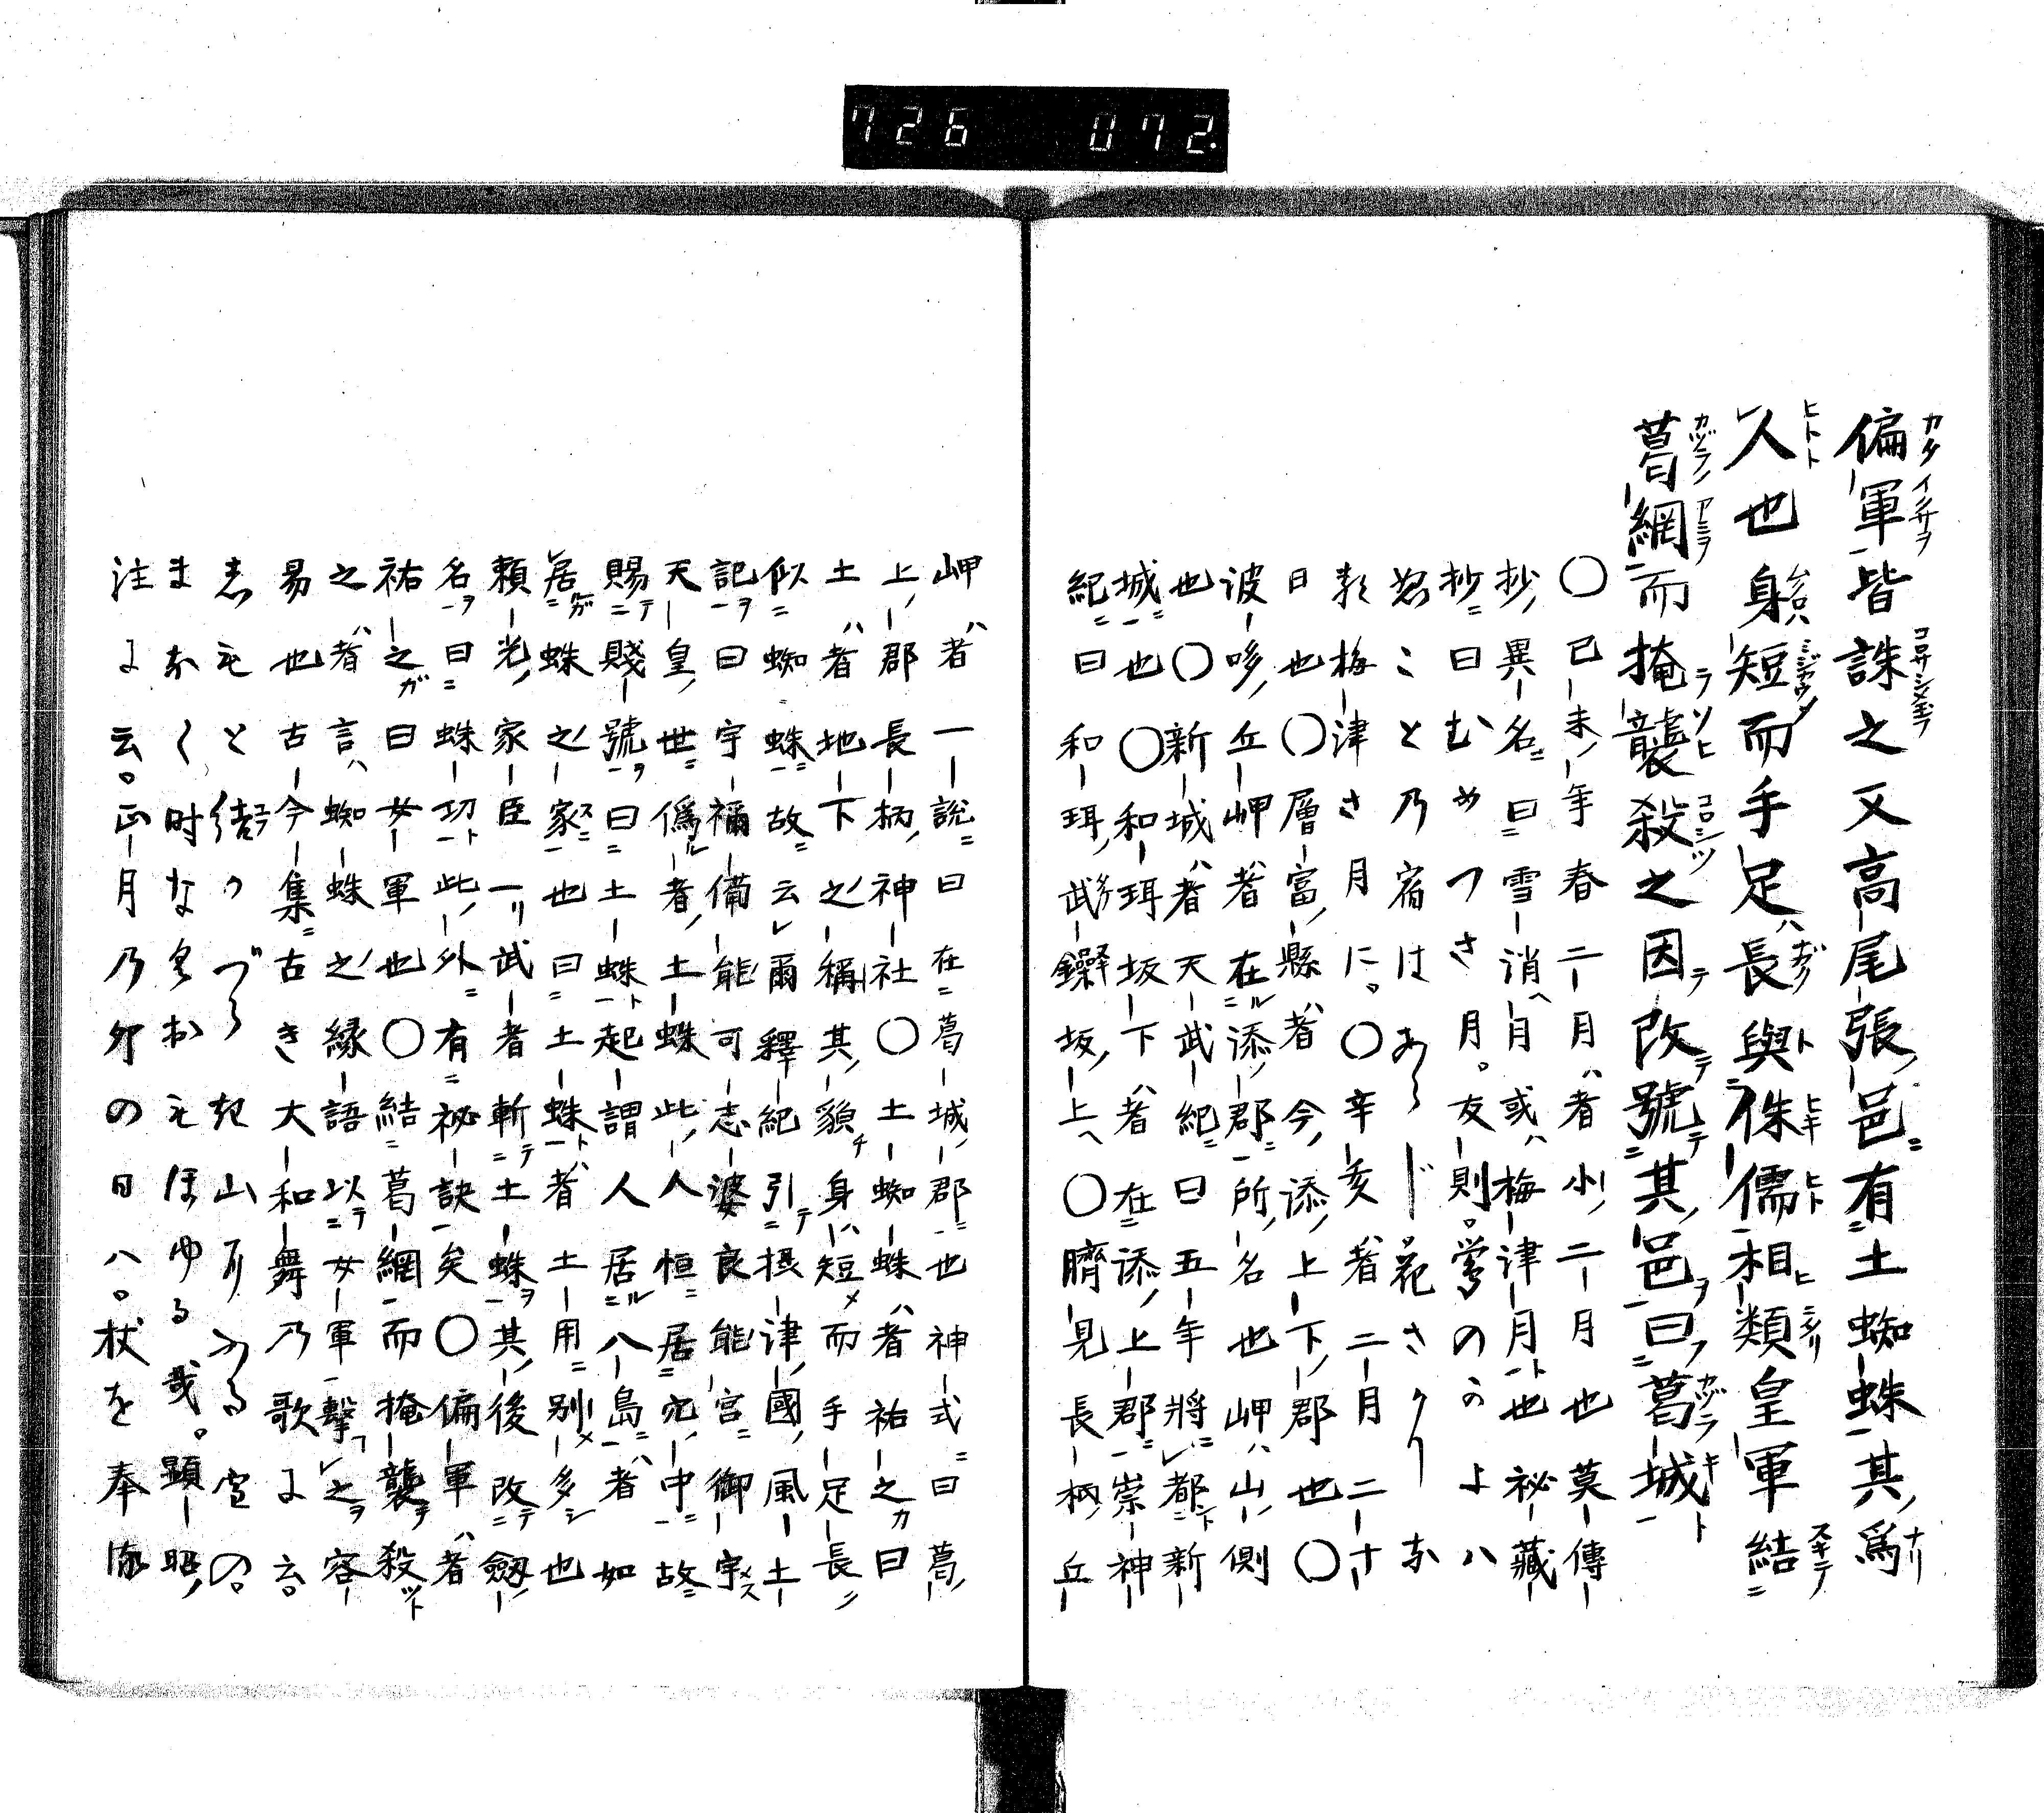 726 072.
偏軍皆誅之又高尾張邑有土蜘蛛其爲
人也身短而手足長與侏儒相類皇軍結
葛網而掩襲殺之因改號其邑曰葛城
〇已未年春二月者小二月也莫傳
抄異名曰雪消月或梅津月也祕藏
抄曰むめつさ月。友則。鶯のよハ
ことの宿はあらじ花さ
梅津さ月に。〇辛亥者二月二十
日也〇層富縣者今添上下郡也〇
波哆丘岬者在添郡所名也岬山側
也〇新城者天武紀曰五年將都新
城也〇和珥坂下者在添上郡崇神
紀曰和珥武鐰坂上〇臍見長柄丘
岬者一説曰在葛城郡也神式曰葛
上郡長柄神社〇土蜘蛛者祐之曰
土者地下之稱其貌身短而手足長
似蜘蛛故云爾釋紀引摂津國風土
記曰宇禰備能可志婆良能宮御宇
天皇世偽者土蛛此人恒居穴中故
賜賤號曰土蛛起謂人居八島者如
居蛛之家也曰土蛛者土用別多也
頼光家臣一武者斬土蛛其後改劔
名曰蛛切此外有祕訣矣〇偏軍者
祐之曰女軍也〇結葛網而掩襲殺
之者言蜘蛛之緣語以女軍擊之容
易也古今集古き大和舞乃歌に云。
志もと結かづらき山にふる雪の。
まなく時なくおもほゆる哉。顕昭
注に云。正月乃卯の日ハ。杖を奉